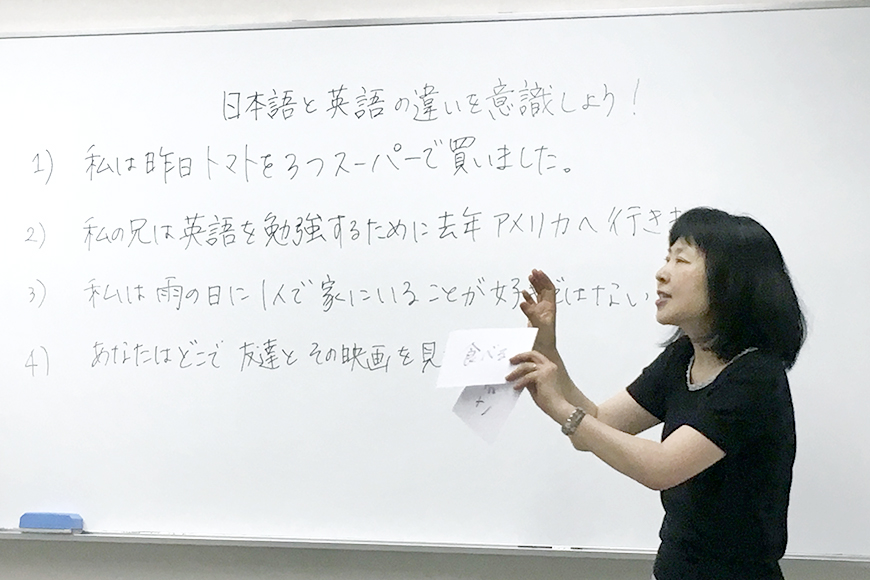 日本語と英語の違いを意識しよう!
1) 私は昨日トマトを3つスーパーで買いました。
2) 私の兄は英語を勉強するために去年アメリカへ行きま
3) 私は雨の日に1人で家にいることが好きではない
4) あなたはどこで友達とその映画を見
食べる